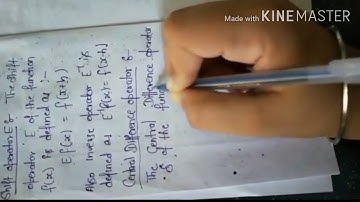 Made with KINEMASTER
Shift operator E :- The shift
operator E of the function
f(x) is defined as :-
E f(x) = f(x+h)
Also inverse operator E⁻¹ is
defined as E⁻¹f(x) = f(x-h)
Central Difference operator :-
The Central Difference operator
δ of the func